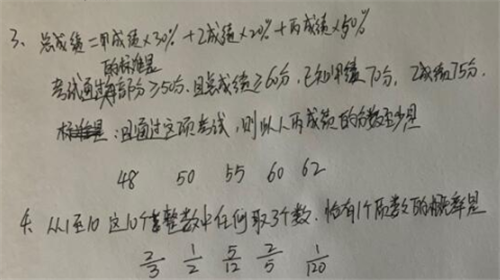 3、总成绩=甲成绩×30%+乙成绩×20%+丙成绩×50%
的标准是
考试通过每部分≥50分.且总成绩≥60分,已知甲绩70分,乙成绩75分.
:且通过这项考试,则此人丙成绩的分数至少是
48 50 55 60 62
4. 从1至10这10个整数中任何取3个数.恰有1个质数的概率是
2/3 1/2 5/12 2/5 1/120